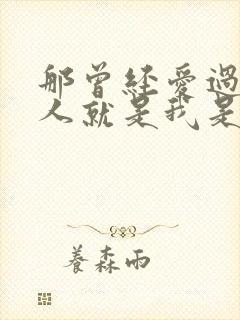 那曾經愛過
人就是我是
養森雨